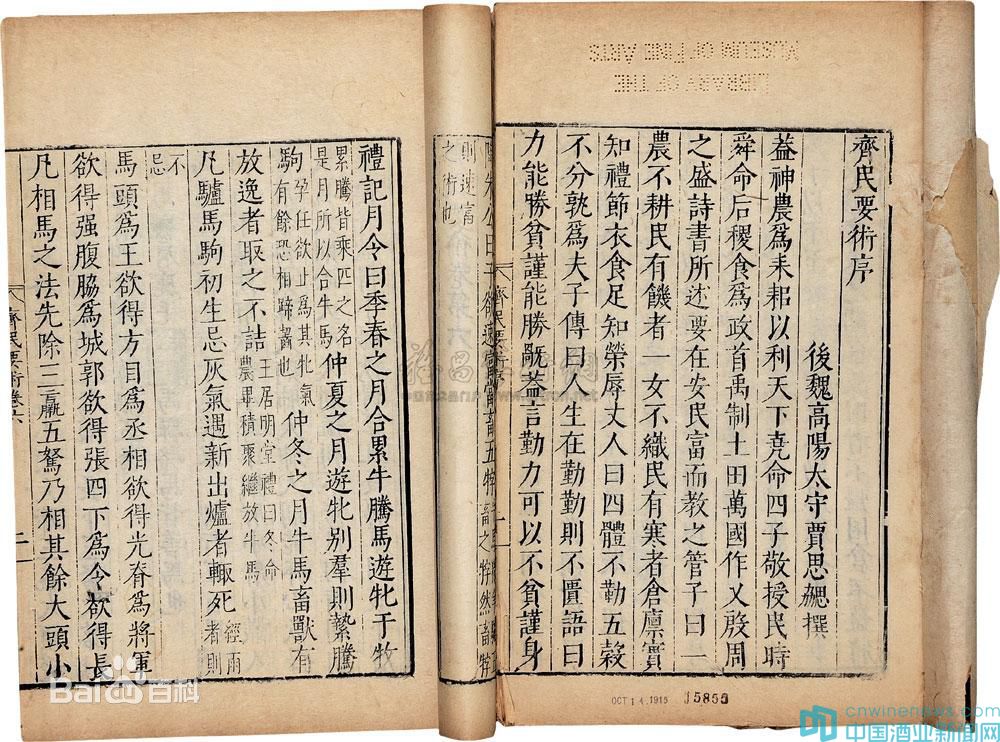 LIBRARY OF THE
MUSEUM OF FINE ARTS
齊民要術序
後魏高陽太守賈思勰撰
葢神農爲耒耜以利天下堯命四子敬授民時
舜命后稷食爲政首禹制土田萬國作乂殷周
之盛詩書所述要在安民富而教之管子曰一
農不耕民有饑者一女不織民有寒者倉廩實
知禮節衣食足知榮辱丈人曰四體不勤五榖
不分孰爲夫子傳曰人生在勤勤則不匱語曰
力能勝貧謹能勝禍葢言勤力可以不貧謹身
齊民要術序
朱公曰子欲速富當畜五牸
畜之牸然畜牸
則速富
之術也
禮記月令曰季春之月合累牛騰馬遊牝于牧
累騰皆乘匹之名
是月所以合牛馬
仲夏之月遊牝别羣則縶騰
駒
孕任欲止爲其牝氣
有餘恐相蹄齧也
仲冬之月牛馬畜獸有
放逸者取之不詰
王居明堂禮曰冬命
農畢積聚繼放牛馬
凡驢馬駒初生忌灰氣遇新出爐者輒死
經雨
者則
不
忌
馬頭爲王欲得方目爲丞相欲得光脊爲將軍
欲得强腹脇爲城郭欲得張四下爲令欲得長
凡相馬之法先除三羸五駑乃相其餘大頭小
齊民要術卷六
二
OCT 14.1915
15855
Baidu百科
cnwinenews.com
中国酒业新闻网